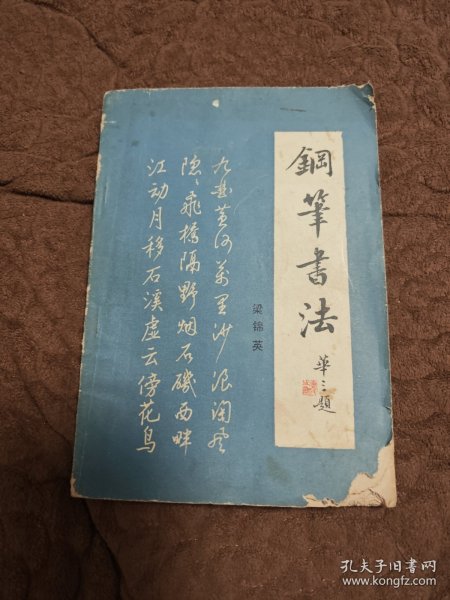 鋼筆書法
華三題
梁錦英
九曲黄河萬里沙浪淘风
隐隐飛橋隔野烟石磯西畔
江动月移石溪虚云傍花鸟
孔夫子旧书网
www.kongfz.com